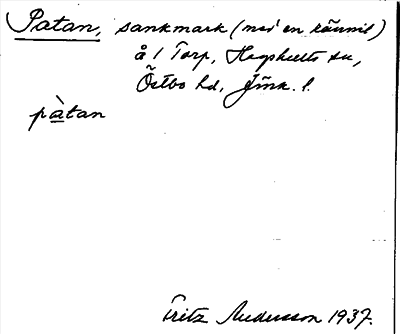 Patan, sankmark (med en rännil)
å 1 Torp, Hagshults sn,
Östbo hd, Jönk. l.
pàtan
Fritz Andersson 1937.